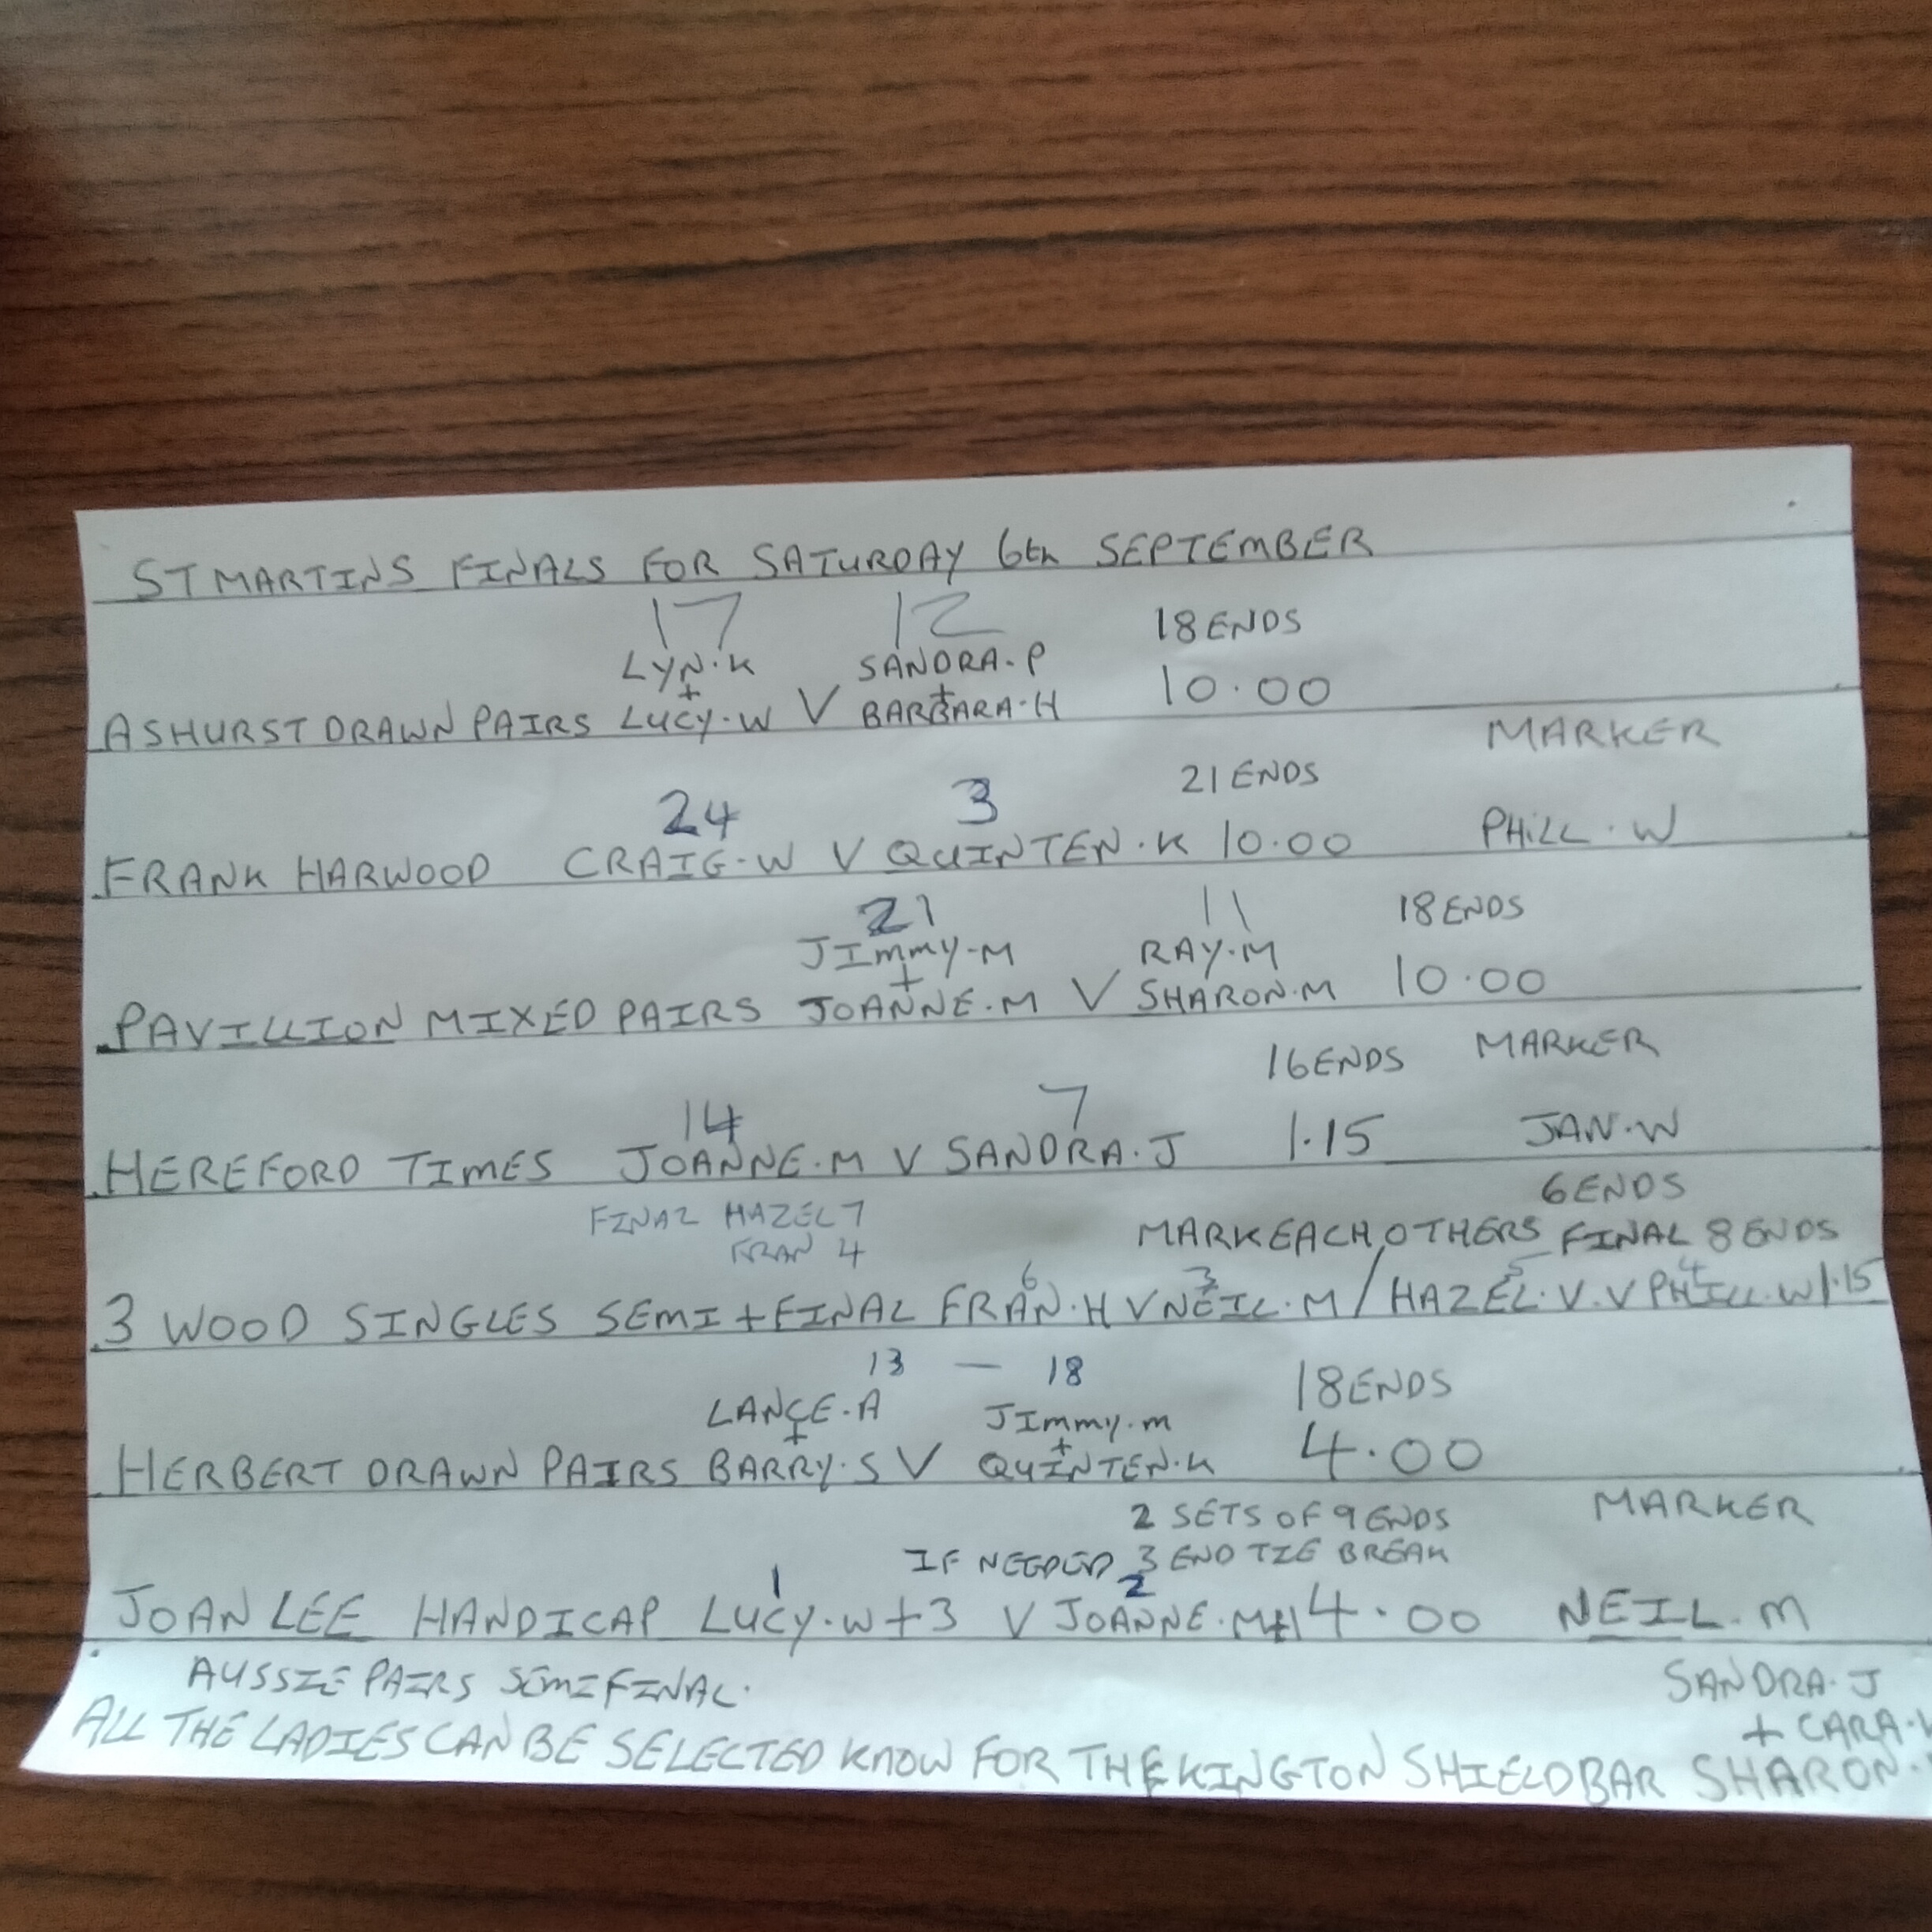 ST MARTINS FINALS FOR SATURDAY 6th SEPTEMBER
17 12 18 ENDS
LYN.K SANDRA.P
+ +
ASHURST DRAWN PAIRS LUCY.W V BARBARA.H 10.00
MARKER
24 3 21 ENDS
FRANK HARWOOD CRAIG.W V QUINTEN.K 10.00 PHILL.W
21 11 18 ENDS
JIMMY.M RAY.M
+
PAVILLION MIXED PAIRS JOANNE.M V SHARON.M 10.00
16 ENDS MARKER
14 7
HEREFORD TIMES JOANNE.M V SANDRA.J 1.15 JAN.W
6 ENDS
FINAL HAZEL 7 MARK EACH OTHERS FINAL 8 ENDS
FRAN 4
6 3 5 4
3 WOOD SINGLES SEMI + FINAL FRAN.H V NEIL.M / HAZEL.V. V PHILL.W 1.15
13 — 18 18 ENDS
LANCE.A JIMMY.M
+ +
HERBERT DRAWN PAIRS BARRY.S V QUINTEN.K 4.00
2 SETS OF 9 ENDS MARKER
IF NEEDED 3 END TIE BREAK
1 2
JOAN LEE HANDICAP LUCY.W+3 V JOANNE.M+1 4.00 NEIL.M
AUSSIE PAIRS SEMI FINAL. SANDRA.J
+ CARA.
ALL THE LADIES CAN BE SELECTED KNOW FOR THE KINGTON SHIELD BAR SHARON.